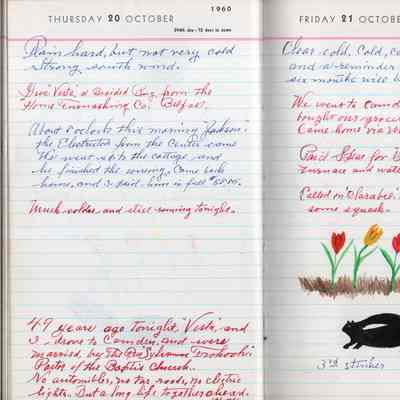 1960
THURSDAY 20 OCTOBER
294th day - 72 days to come
Rain hard, but not very cold
Strong south wind.
Give "Vesta" a Braided Rug from the
Home Furnishing Co. Belfast.
About 8 o'clock this morning "Jackson"
the Electrician from the Center came
We went up to the cottage and
he finished the sewing. Came back
home, and I paid him in full
Much colder and still raining tonight.
49 years ago tonight, "Vesta" and
I drove to Camden, and were
married, by The Rev. Sylvanus
Pastor of the Baptist Church.
No automobiles, no tar roads, no electric
lights. But a long life together ahead.
FRIDAY 21 OCTOBE
Clear cold. Cold, co
and a reminder
six months will b
We went to Camd
bought our grocer
Came home via
Paid for
Furnace and wat
Called on "Clarabel"
some squash.
3rd striker